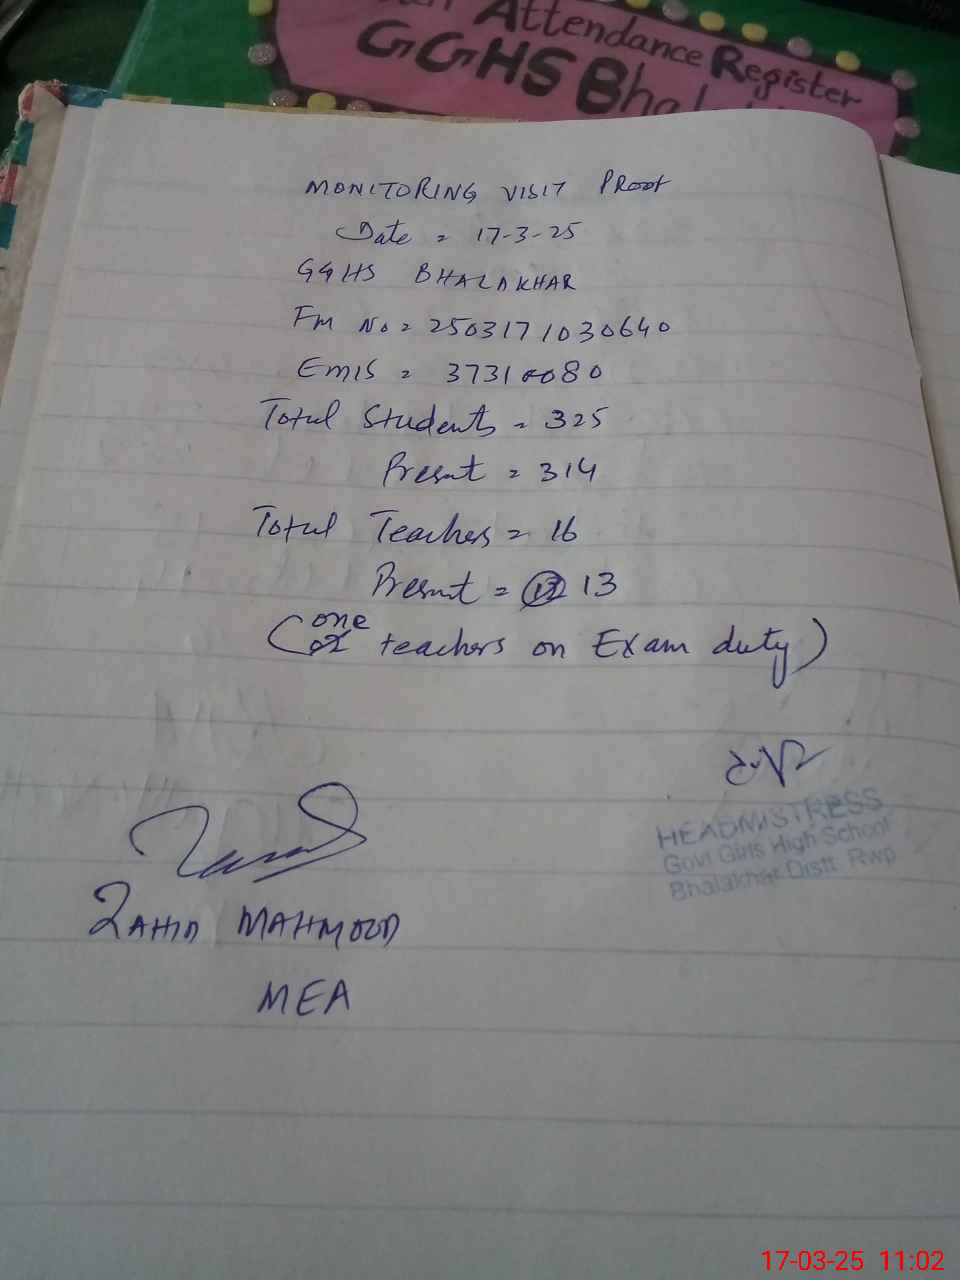 Attendance Register
GGHS Bhalakhar
MONITORING VISIT PROOF
Date = 17-3-25
GGHS BHALAKHAR
Fm No = 2503171030640
EMIS = 37310080
Total Students = 325
Present = 314
Total Teachers = 16
Present = 13
(one teachers on Exam duty)
HEADMISTRESS
Govt Girls High School
Bhalakhar Distt Rwp
ZAHID MAHMOOD
MEA
17-03-25 11:02